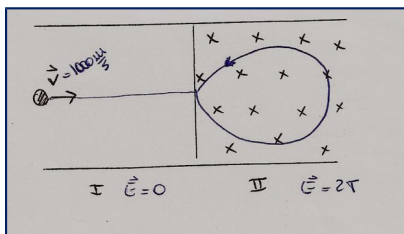 v⃗=1000 m/s
I E⃗=0 II E⃗=2T